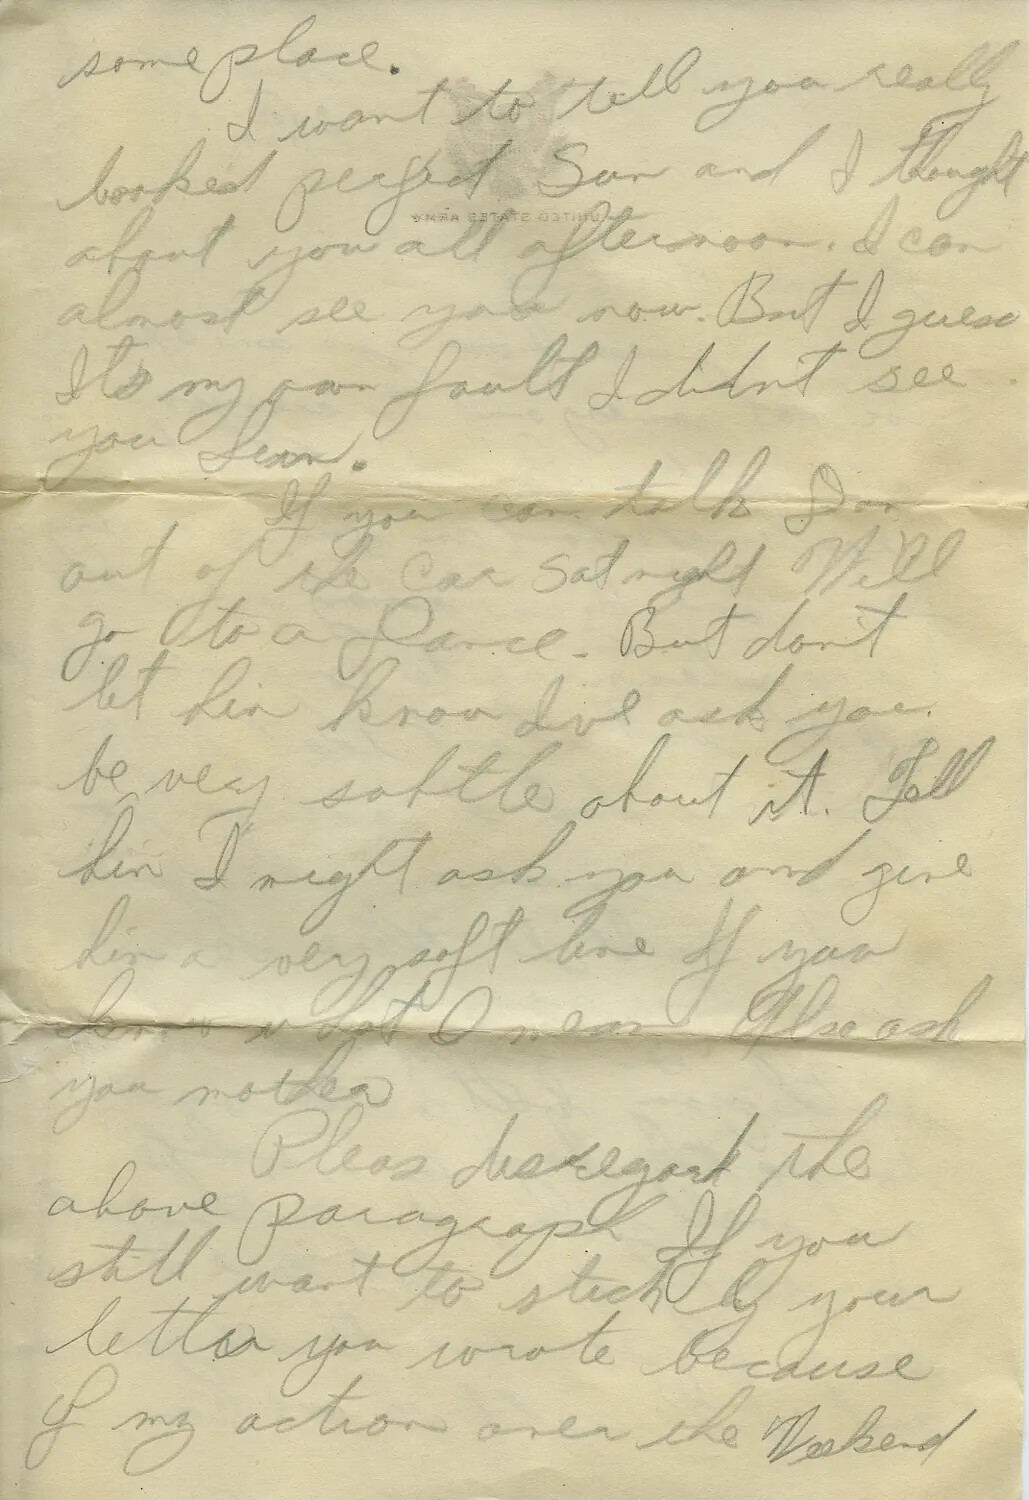 some place.
I want to tell you really
looked perfect Sun and I thought
UNITED STATES ARMY
about you all afternoon. I can
almost see you now. But I guess
It's my own fault I didn't see
you Sun.
If you can talk Don
out of the car Sat night Will
go to a Dance. But don't
let him know I've ask you.
be very subtle about it. Tell
him I might ask you and give
him a very soft line If you
know what I mean Also ask
you mother
Pleas disregard the
above paragraph If you
still want to stick by your
letter you wrote because
of my action over the Weekend